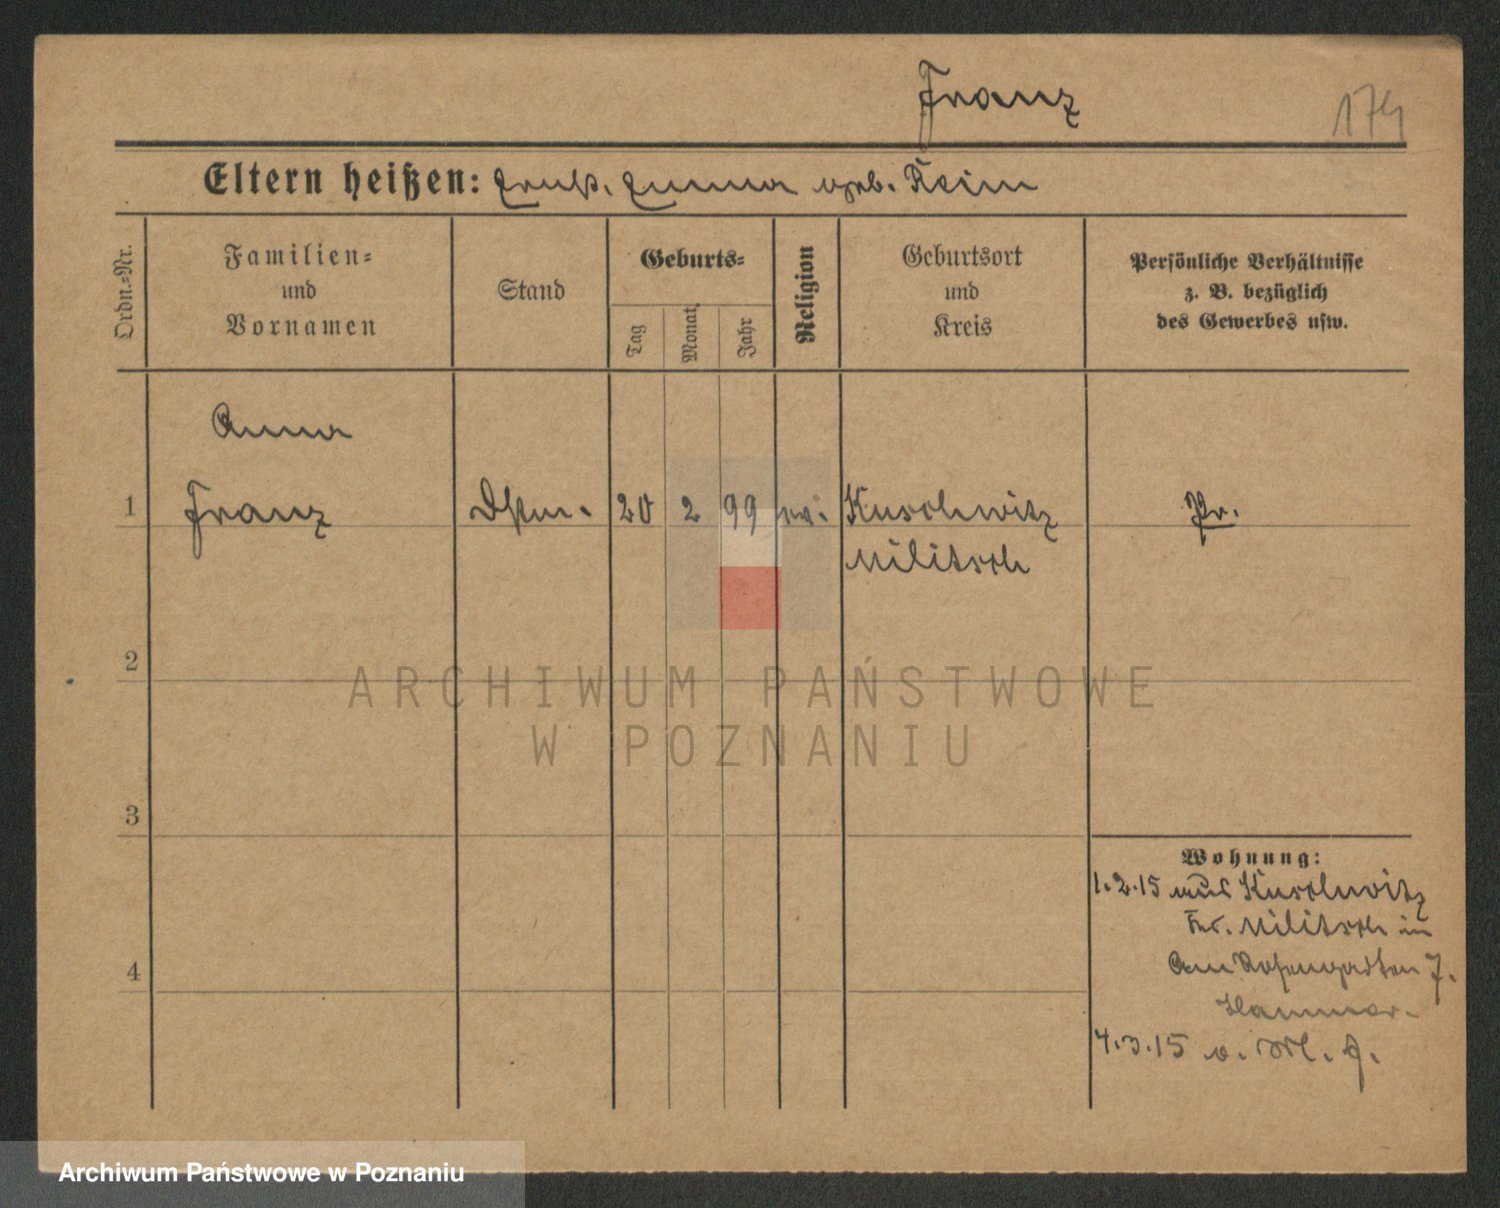 Franz
174
Eltern heißen: Ernst. Emma geb. Keim
Ordn.-Nr.
Familien-
und
Vornamen
Stand
Geburts-
Tag
Monat
Jahr
Religion
Geburtsort
und
Kreis
Persönliche Verhältnisse
z. B. bezüglich
des Gewerbes usw.
Anna
1 Franz Dstm. 20 2 99 ev. Kuschwitz Pr.
Militsch
2
ARCHIWUM PAŃSTWOWE
W POZNANIU
3
Wohnung:
1.2.15 aus Kuschwitz
Militsch in
4
Am Rosengarten 7.
Hammer.
4.3.15
Archiwum Państwowe w Poznaniu